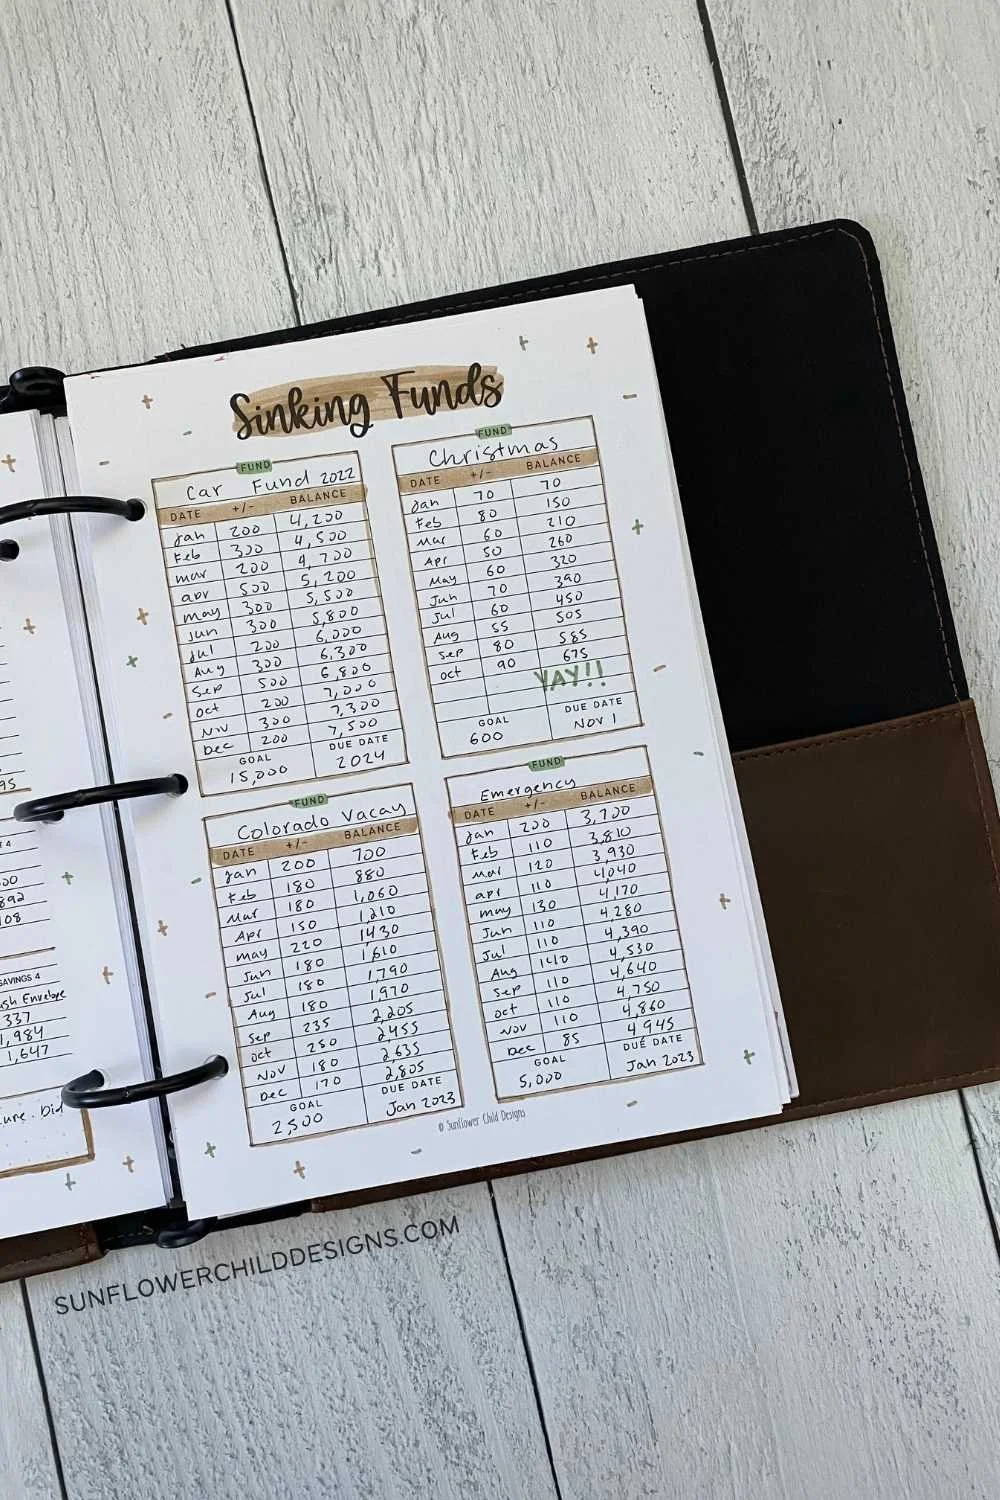 Sinking Funds
FUND
Car Fund 2022
DATE +/- BALANCE
Jan 200 4,200
Feb 300 4,500
mar 200 4,700
apr 500 5,200
may 300 5,500
Jun 300 5,800
Jul 200 6,000
Aug 300 6,300
Sep 500 6,800
Oct 200 7,000
Nov 300 7,300
Dec 200 7,500
GOAL DUE DATE
15,000 2024
FUND
Christmas
DATE +/- BALANCE
Jan 70 70
Feb 80 150
Mar 60 210
Apr 50 260
May 60 320
Jun 70 390
Jul 60 450
Aug 55 505
Sep 80 585
Oct 90 675
YAY!!
GOAL DUE DATE
600 Nov 1
FUND
Colorado Vacay
DATE +/- BALANCE
Jan 200 700
Feb 180 880
Mar 180 1,060
Apr 150 1,210
may 220 1430
Jun 180 1,610
Jul 180 1,790
Aug 180 1,970
Sep 235 2,205
Oct 250 2,455
Nov 180 2,635
Dec 170 2,805
GOAL DUE DATE
2,500 Jan 2023
FUND
Emergency
DATE +/- BALANCE
Jan 200 3,700
Feb 110 3,810
Mar 120 3,930
apr 110 4,040
may 130 4,170
Jun 110 4,280
Jul 110 4,390
Aug 140 4,530
Sep 110 4,640
Oct 110 4,750
Nov 110 4,860
Dec 85 4,945
GOAL DUE DATE
5,000 Jan 2023
© Sunflower Child Designs
SAVINGS 4
Envelope
337
1,984
1,647
SUNFLOWERCHILDDESIGNS.COM